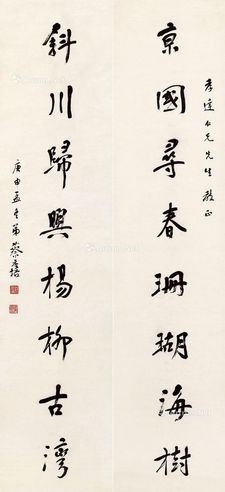 孝達仁兄先生教正
京國尋春珊瑚海樹
斜川歸興楊柳古灣
庚申孟冬弟蔡